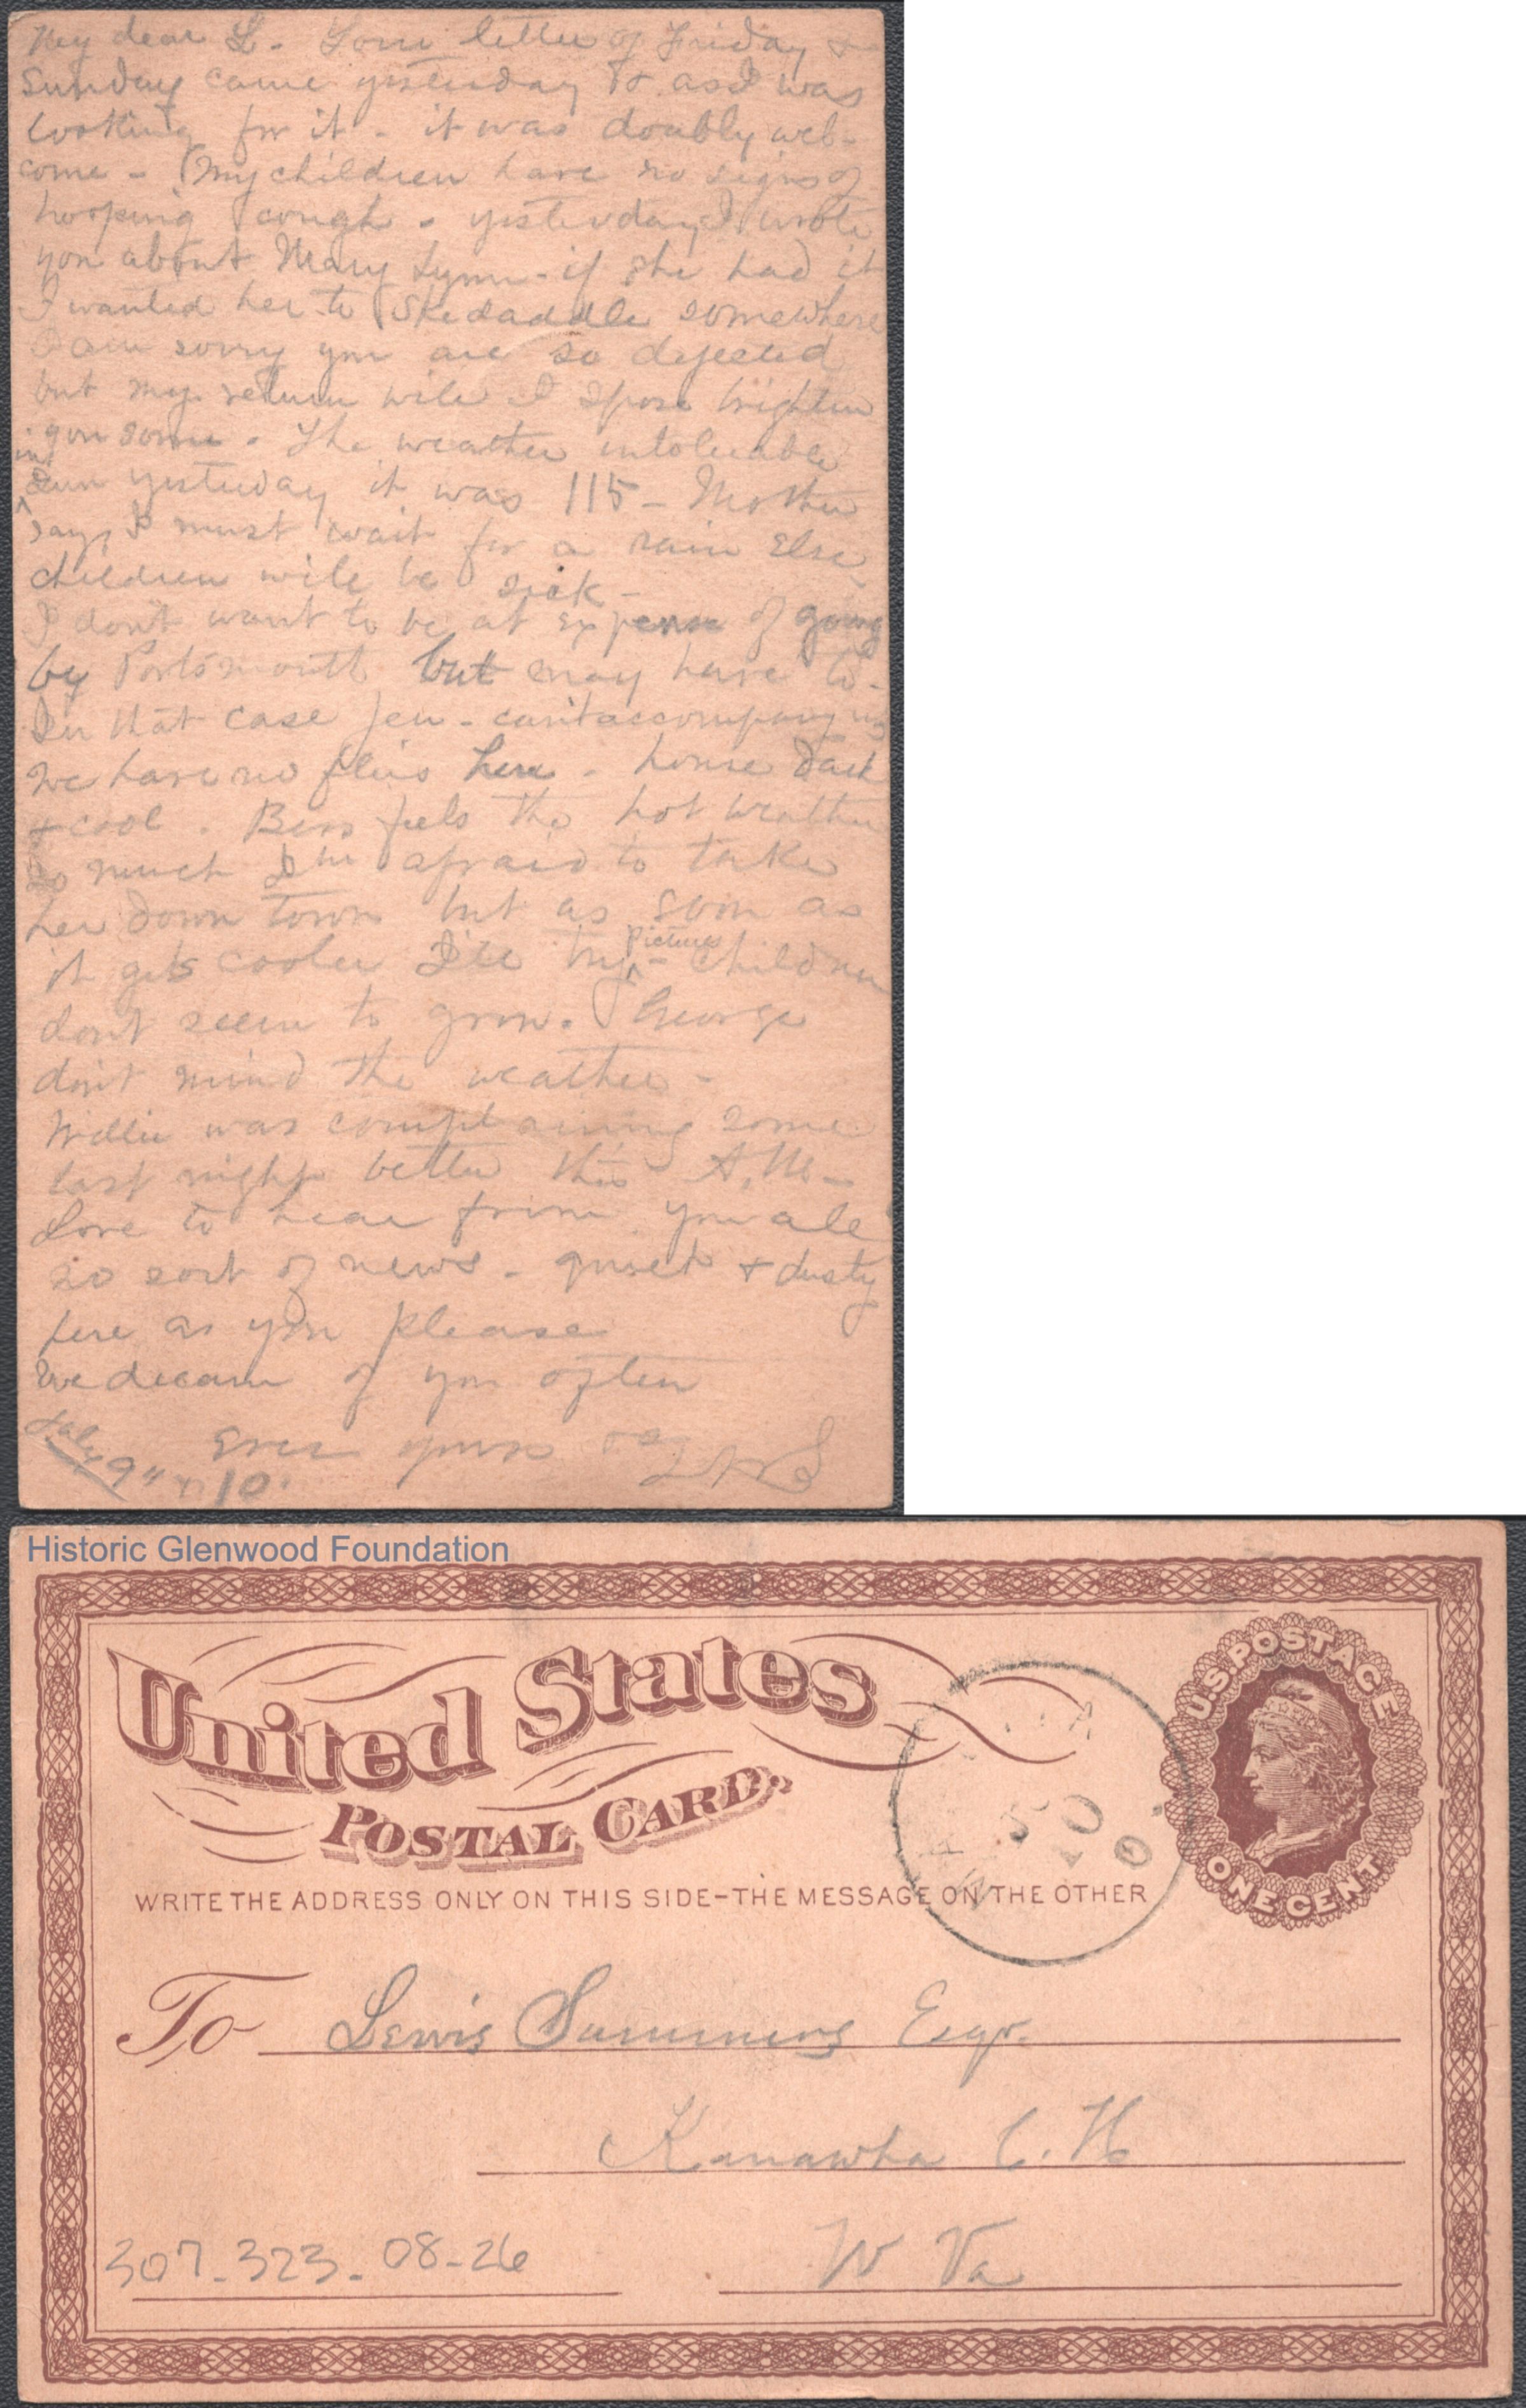 My dear L. Your letter of Friday &
Sunday came yesterday & as I was
looking for it - it was doubly wel-
come - My children have no signs of
hooping cough - yesterday I wrote
you about Mary Lynn - if she had it
I wanted her to Skedaddle somewhere
I am sorry you are so dejected
but my return will I spose brighten
you some. The weather intolerable
in
sun yesterday it was 115 - Mother
says I must wait for a rain else
children will be sick -
I dont want to be at expense of going
by Portsmouth but may have to -
In that case Jen - cant accompany us
We have no flies here - house dark
& cool. Bess feels the hot weather
so much I'm afraid to take
her down town but as soon as
it gets cooler I'll try pictures - children
dont seem to grow. George
dont mind the weather -
Willie was complaining some
last night better this A.M. -
Love to hear from you all
no sort of news - quiet & dusty
here as you please
We dream of you often
Ever yours
July 9" 10.
Historic Glenwood Foundation
United States
Postal Card.
U.S. POSTAGE
ONE CENT
WRITE THE ADDRESS ONLY ON THIS SIDE-THE MESSAGE ON THE OTHER
To Lewis Summers Esqr.
Kanawha C. H
W Va
307-323-08-26